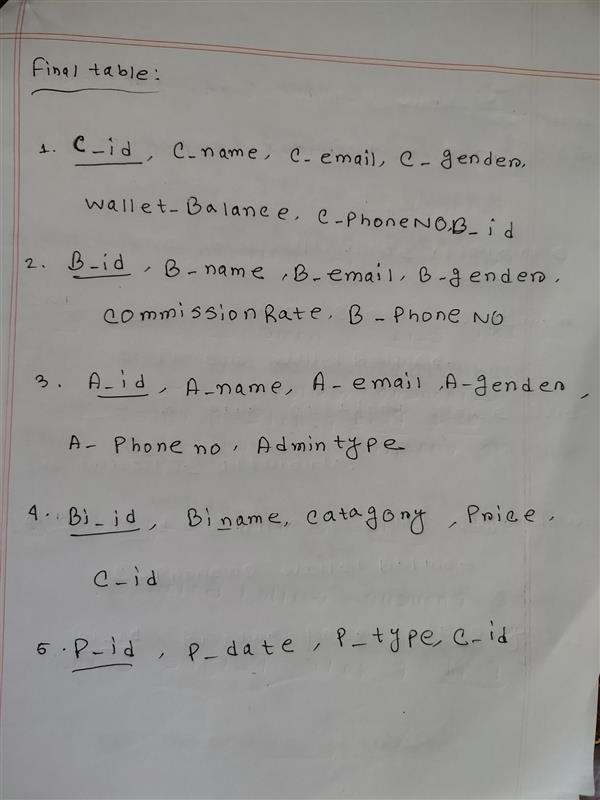 Final table:
1. C_id, C_name, C_email, C_gender,
Wallet_Balance, C_PhoneNO, B_id
2. B_id, B_name, B_email, B_gender,
Commission Rate, B_Phone NO
3. A_id, A_name, A_email, A_gender,
A_Phone no, Admin type
4. Bi_id, Bi name, catagory, Price,
C_id
5. P_id, P_date, P_type, C_id